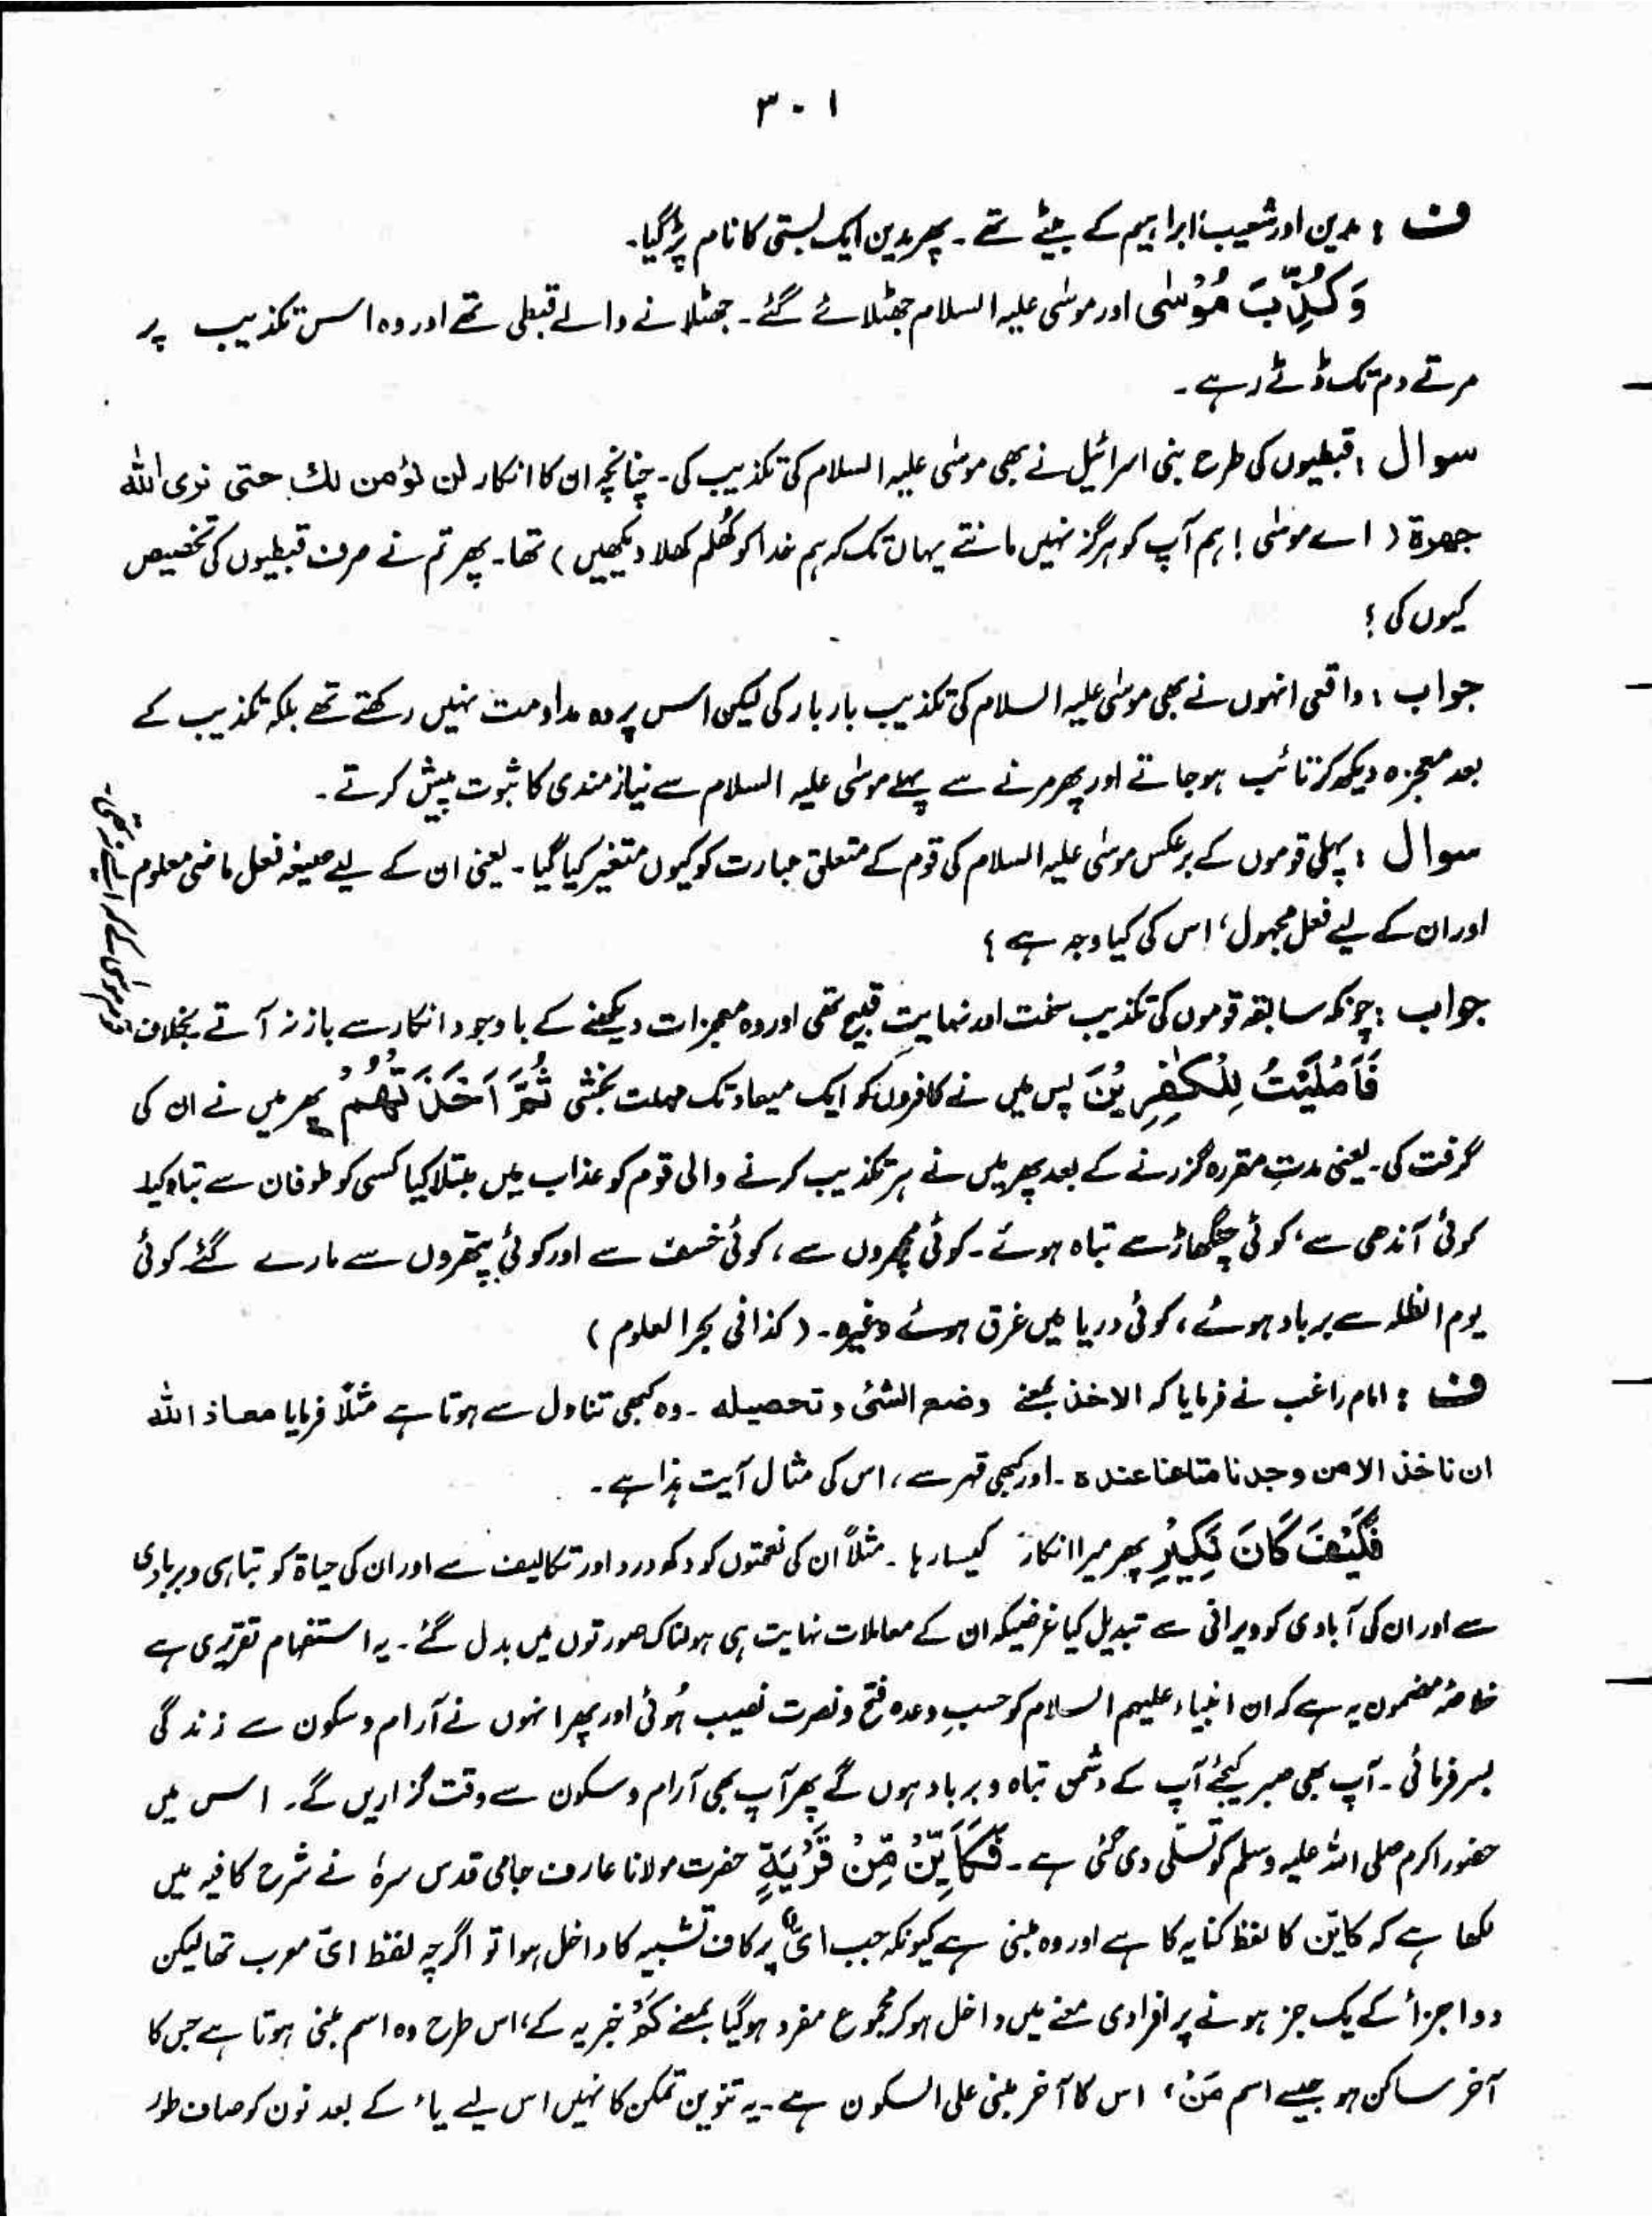 ۳۰۱
ف : مدین اور شعیب ابراہیم کے بیٹے تھے ۔ پھر مدین ایک بستی کا نام پڑ گیا۔
وَكُذِّبَ مُوْسٰى اور موسٰی علیہ السلام جھٹلائے گئے ۔ جھٹلانے والے قبطی تھے اور وہ اس تکذیب پر
مرتے دم تک ڈٹے رہے ۔
سوال : قبطیوں کی طرح بنی اسرائیل نے بھی موسٰی علیہ السلام کی تکذیب کی ۔ چنانچہ ان کا انکار لن نؤمن لك حتی نری الله
جھرۃ ( اے موسٰی ! ہم آپ کو ہرگز نہیں مانتے یہاں تک کہ ہم خدا کو کھُلم کھلا دیکھیں ) تھا ۔ پھر تم نے صرف قبطیوں کی تخصیص
کیوں کی ؟
جواب : واقعی انہوں نے بھی موسٰی علیہ السلام کی تکذیب بار بار کی لیکن اس پر وہ مداومت نہیں رکھتے تھے بلکہ تکذیب کے
بعد معجزہ دیکھ کر تائب ہو جاتے اور پھر مرنے سے پہلے موسٰی علیہ السلام سے نیاز مندی کا ثبوت پیش کرتے ۔
سوال : پہلی قوموں کے برعکس موسٰی علیہ السلام کی قوم کے متعلق عبارت کو کیوں متغیر کیا گیا ۔ یعنی ان کے لیے صیغہ فعل ماضی معلوم
اور ان کے لیے فعل مجہول ، اس کی کیا وجہ ہے ؟
جواب : چونکہ سابقہ قوموں کی تکذیب سخت اور نہایت قبیح تھی اور وہ معجزات دیکھنے کے باوجود انکار سے باز نہ آتے بخلاف
قوم موسٰی کے کہ ایسے نہ تھی ۔
فَاَمْلَيْتُ لِلْكٰفِرِيْنَ پس میں نے کافروں کو ایک میعاد تک مہلت بخشی ثُمَّ اَخَذْتُهُمْ پھر میں نے ان کی
گرفت کی ۔ یعنی مدتِ مقررہ گزرنے کے بعد پھر میں نے ہر تکذیب کرنے والی قوم کو عذاب میں مبتلا کیا کسی کو طوفان سے تباہ کیا
کوئی آندھی سے ، کوئی چنگھاڑ سے تباہ ہوئے ۔ کوئی مچھروں سے ، کوئی خسف سے اور کوئی پتھروں سے مارے گئے کوئی
یوم الظلہ سے برباد ہوئے ، کوئی دریا میں غرق ہوئے وغیرہ ۔ ( کذا فی بحر العلوم )
ف : امام راغب نے فرمایا کہ الاخذ بمعنے وضع الشئ و تحصیلہ ۔ وہ کبھی تناول سے ہوتا ہے مثلاً فرمایا معاذ الله
ان ناخذ الا من وجدنا متاعنا عندہ ۔ اور کبھی قہر سے ، اس کی مثال آیت ہذا ہے ۔
فَكَيْفَ كَانَ نَكِيْرِ پھر میرا انکار کیسا رہا ۔ مثلاً ان کی نعمتوں کو دکھ درد اور تکالیف سے اور ان کی حیاۃ کو تباہی و بربادی
سے اور ان کی آبادی کو ویرانی سے تبدیل کیا غرضیکہ ان کے معاملات نہایت ہی ہولناک صورتوں میں بدل گئے ۔ یہ استفہام تقریری ہے
خلاصۂ مضمون یہ ہے کہ ان انبیاء علیہم السلام کو حسبِ وعدہ فتح و نصرت نصیب ہُوئی اور پھر انہوں نے آرام و سکون سے زندگی
بسر فرمائی ۔ آپ بھی صبر کیجئے آپ کے دشمن تباہ و برباد ہوں گے پھر آپ بھی آرام و سکون سے وقت گزاریں گے ۔ اس میں
حضور اکرم صلی اللہ علیہ وسلم کو تسلّی دی گئی ہے ۔ فَكَاَيِّنْ مِّنْ قَرْيَةٍ حضرت مولانا عارف جامی قدس سرہٗ نے شرح کافیہ میں
لکھا ہے کہ کایّن کا لفظ کنایہ کا ہے اور وہ مبنی ہے کیونکہ جب ایّ پر کاف تشبیہ کا داخل ہوا تو اگرچہ لفظ ایّ معرب تھا لیکن
دو اجزأ کے یک جز ہونے پر افرادی معنے میں داخل ہو کر مجموع مفرد ہو گیا بمعنے کَمْ خبریہ کے ، اس طرح وہ اسم مبنی ہوتا ہے جس کا
آخر ساکن ہو جیسے اسم مَنْ ، اس کا آخر مبنی علی السکون ہے ۔ یہ تنوین تمکن کا نہیں اس لیے یاء کے بعد نون کو صاف طور